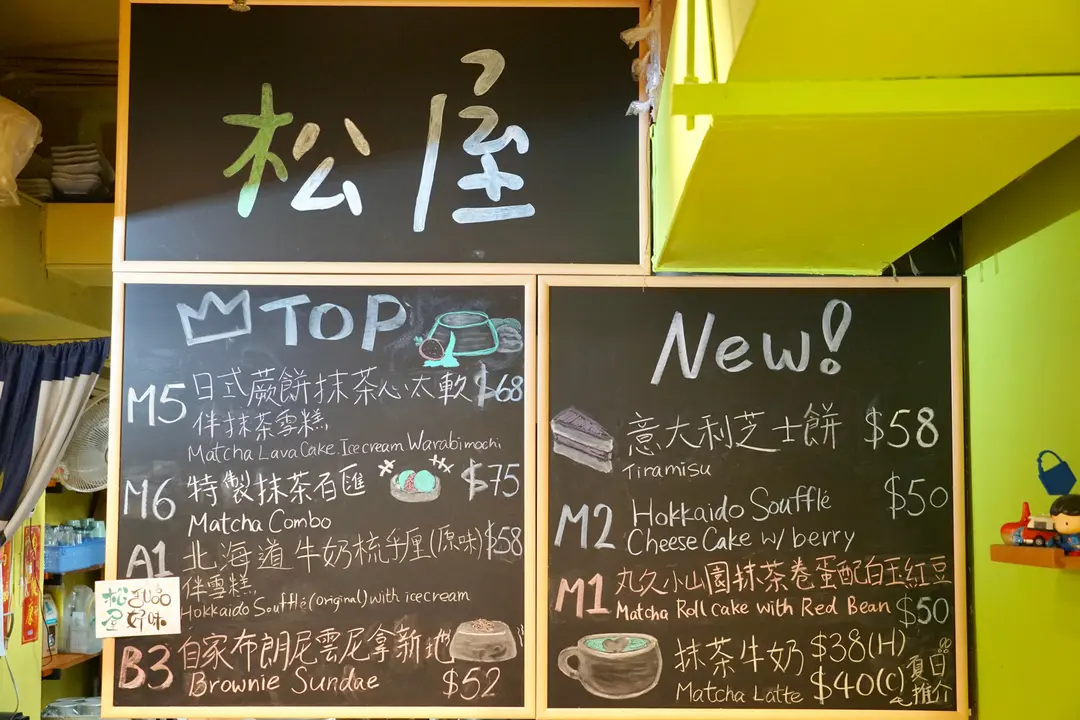 松屋
TOP
M5 日式蕨餅抹茶心太軟 $68
伴抹茶雪糕
Matcha Lava Cake. Ice cream Warabimochi
M6 特製抹茶百匯 $75
Matcha Combo
A1 北海道牛奶梳乎厘(原味) $58
伴雪糕
Hokkaido Soufflé (original) with icecream
松屋
好味
B3 自家布朗尼雲尼拿新地
Brownie Sundae $52
New!
意大利芝士餅 $58
Tiramisu
M2 Hokkaido Soufflé $50
Cheese Cake w/ berry
M1 丸久小山園抹茶卷蛋配白玉紅豆
Matcha Roll cake with Red Bean $50
抹茶牛奶 $38(H)
Matcha Latte $40(C)
夏日
推介